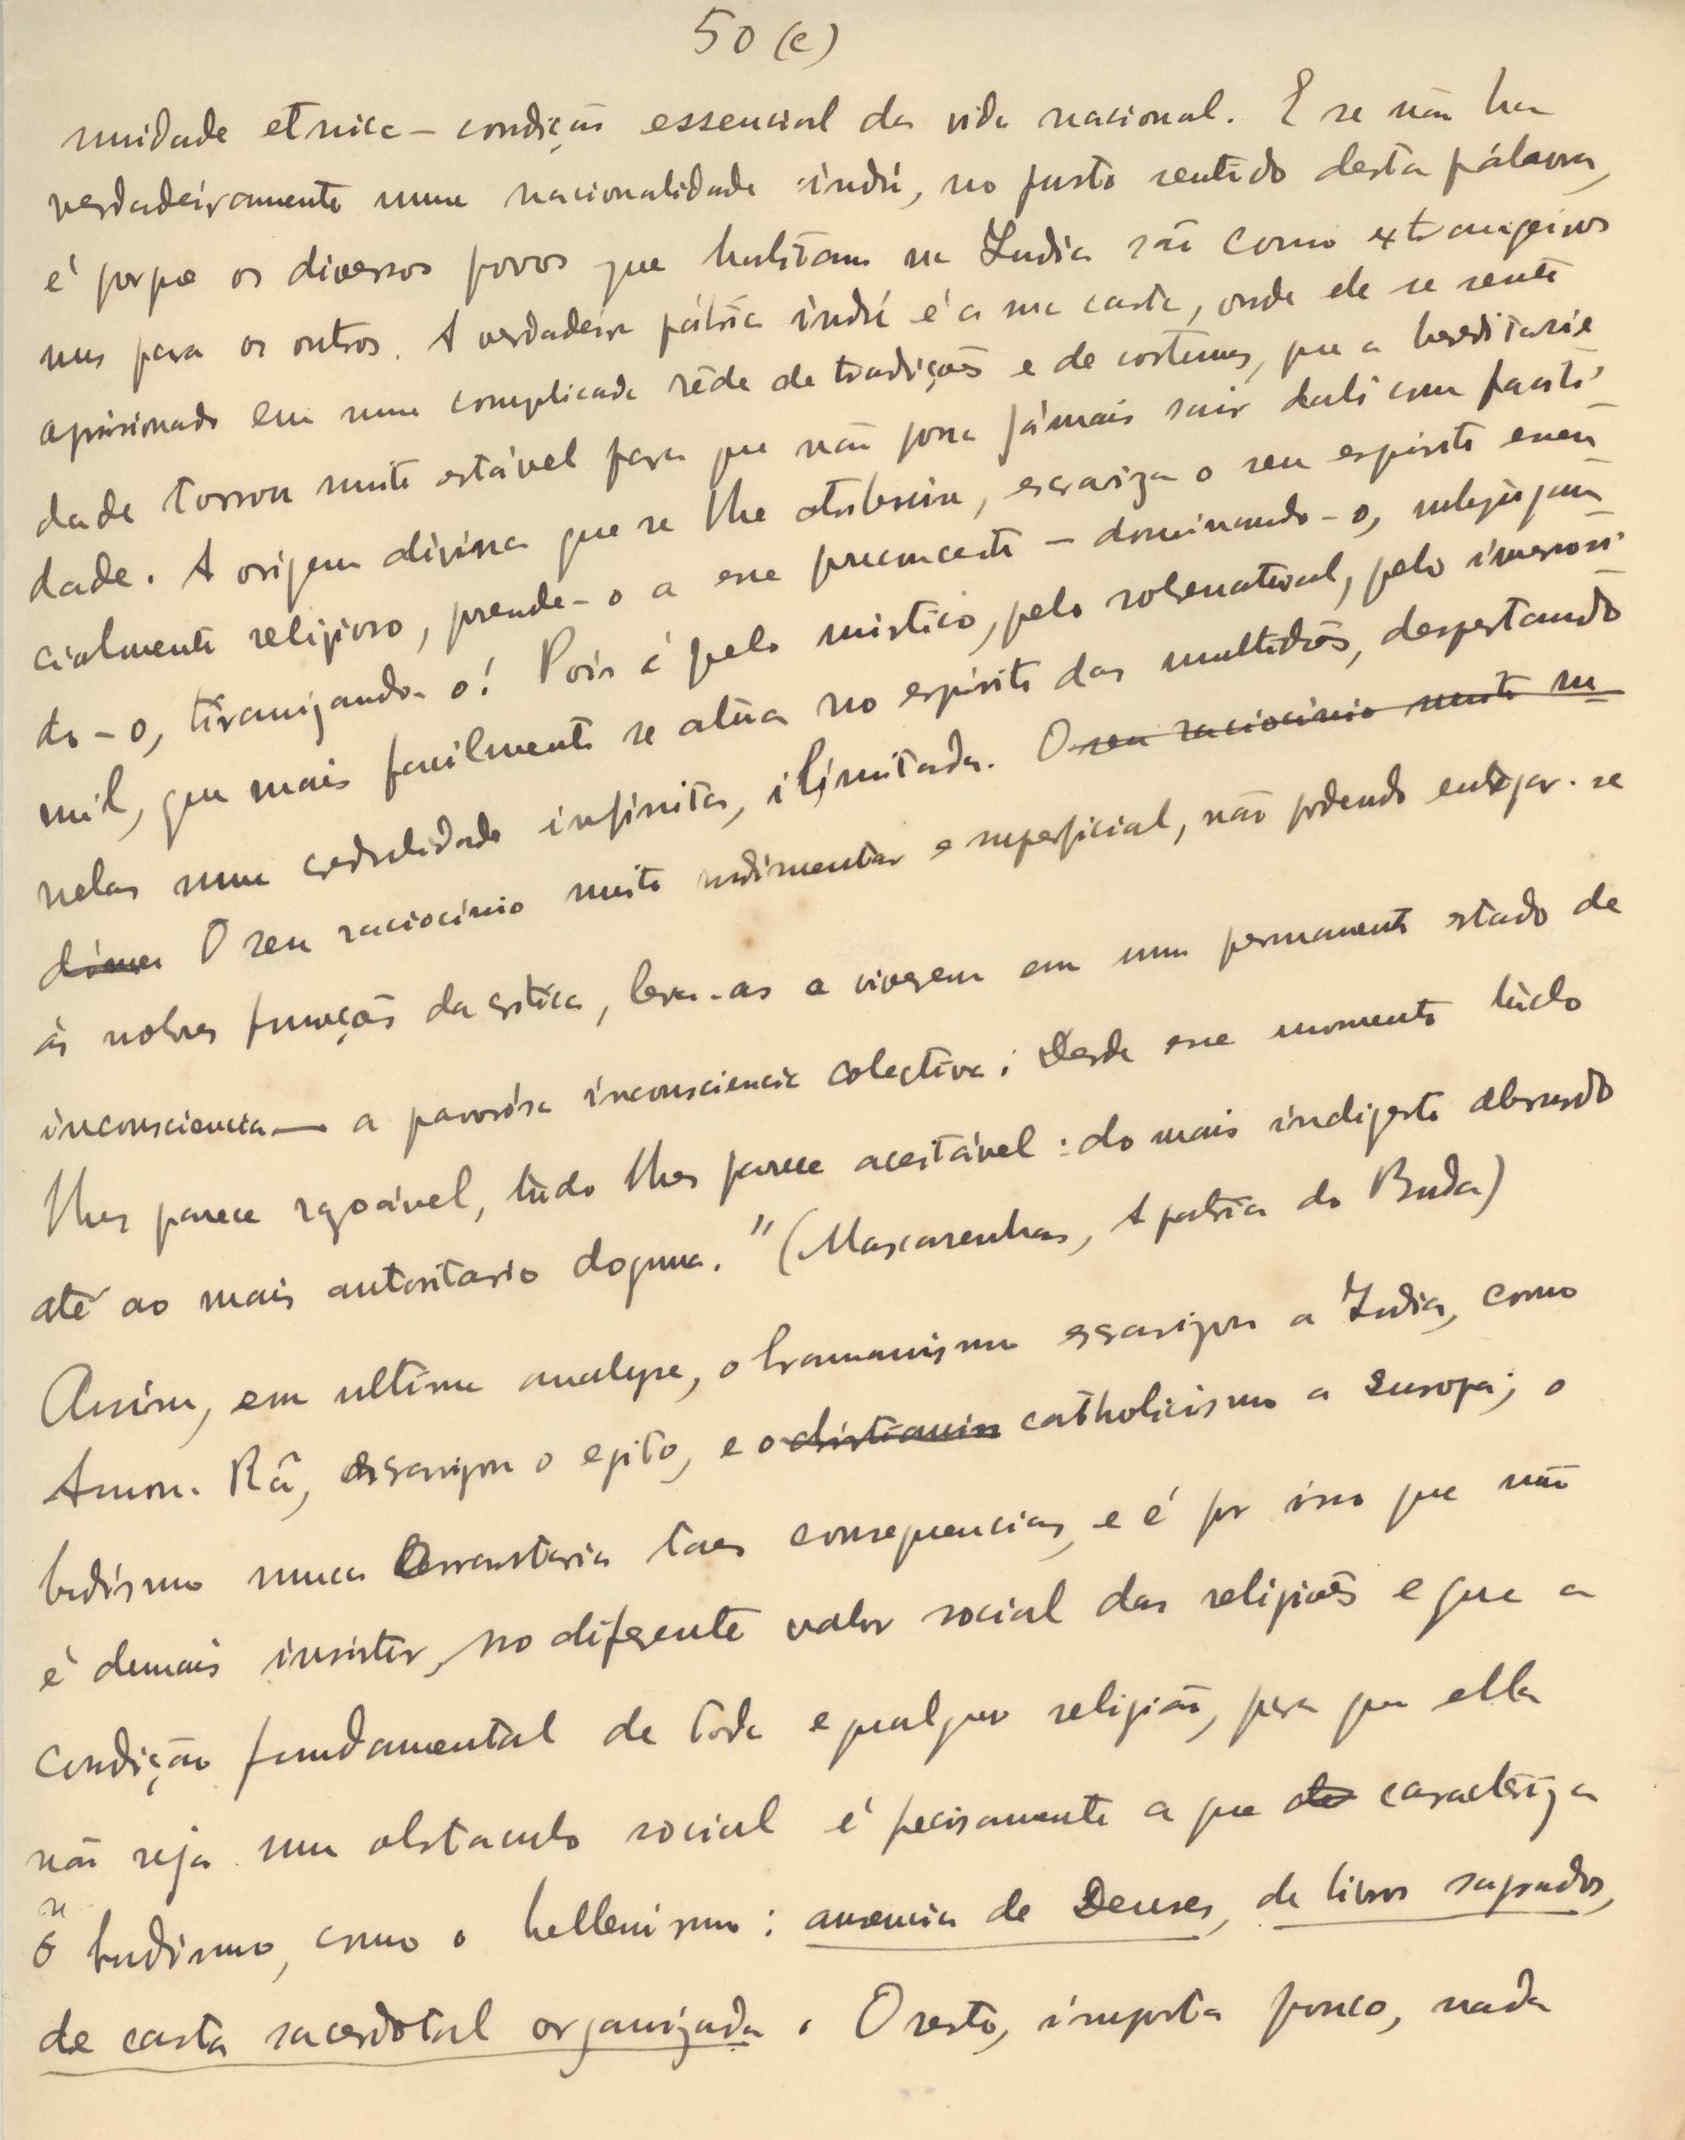 50 (c)
unidade etnica — condição essencial da vida nacional. E se não ha
verdadeiramente uma nacionalidade indú, no justo sentido desta pálavra,
é porque os diversos povos que habitam na India são como extrangeiros
uns para os outros. A verdadeira pátria indú é a sua casta, onde ele se sente
aprisionado em uma complicada rêde de tradições e de costumes, que a hereditarie
dade tornou muito estável para que não possa jámais sair dali com facili-
dade. A origem divina que se lhe atribuiu, escraviza o seu espirito essen
cialmente religioso, prende-o a esse preconceito — dominando-o, subjugan
do-o, tiranizando-o! Pois é pelo mistico, pelo sobrenatural, pelo inverosi-
mil, que mais facilmente se atúa no espirito das multidões, despertando
nelas uma credulidade infinita, ilimitada. O seu raciocinio muito ru
dimen O seu raciocínio muito rudimentar e superficial, não podendo entregar-se
ás nobres funcções da critica, leva-as a viverem em um permanente estado de
inconsciencia — a pavorósa inconsciencia colectiva; Desde esse momento túdo
lhes parece rasoável, túdo lhes parece aceitável: do mais indigesto absurdo
até ao mais autoritario dogma." (Mascarenhas, A patria do Buda)
Assim, em ultima analyse, o bramanismo escravizou a India, como
Amon-Râ, escravizou o egito, e o christianis catholicismo a Europa; o
budismo nunca acarretaria taes consequencias, e é por isso que não
é demais insistir, no diferente valor social das religiões e que a
condição fundamental de toda e qualquer religião, para que ella
não seja um obstaculo social é precisamente a que caracteriza
o budismo, como o hellenismo: ausencia de Deuses, de livros sagrados,
de casta sacerdotal organizada. O resto, importa pouco, nada